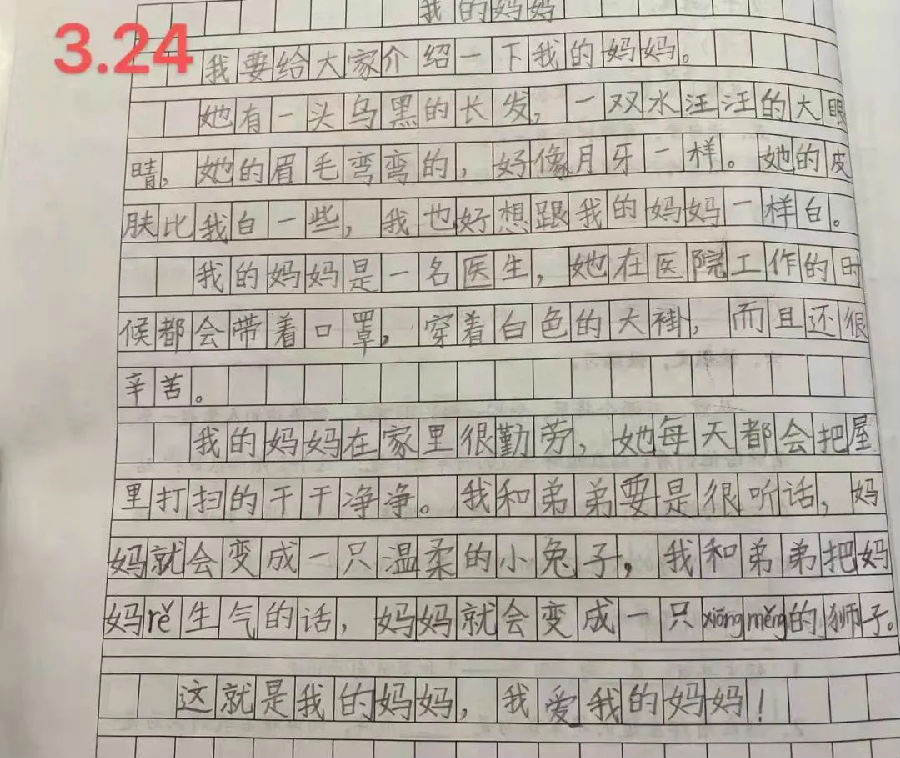 我的妈妈
3.24
我要给大家介绍一下我的妈妈。
她有一头乌黑的长发，一双水汪汪的大眼
睛，她的眉毛弯弯的，好像月牙一样。她的皮
肤比我白一些，我也好想跟我的妈妈一样白。
我的妈妈是一名医生，她在医院工作的时
候都会带着口罩，穿着白色的大褂，而且还很
辛苦。
我的妈妈在家里很勤劳，她每天都会把屋
里打扫的干干净净。我和弟弟要是很听话，妈
妈就会变成一只温柔的小兔子，我和弟弟把妈
妈rě生气的话，妈妈就会变成一只xiōngměng的狮子。
这就是我的妈妈，我爱我的妈妈！